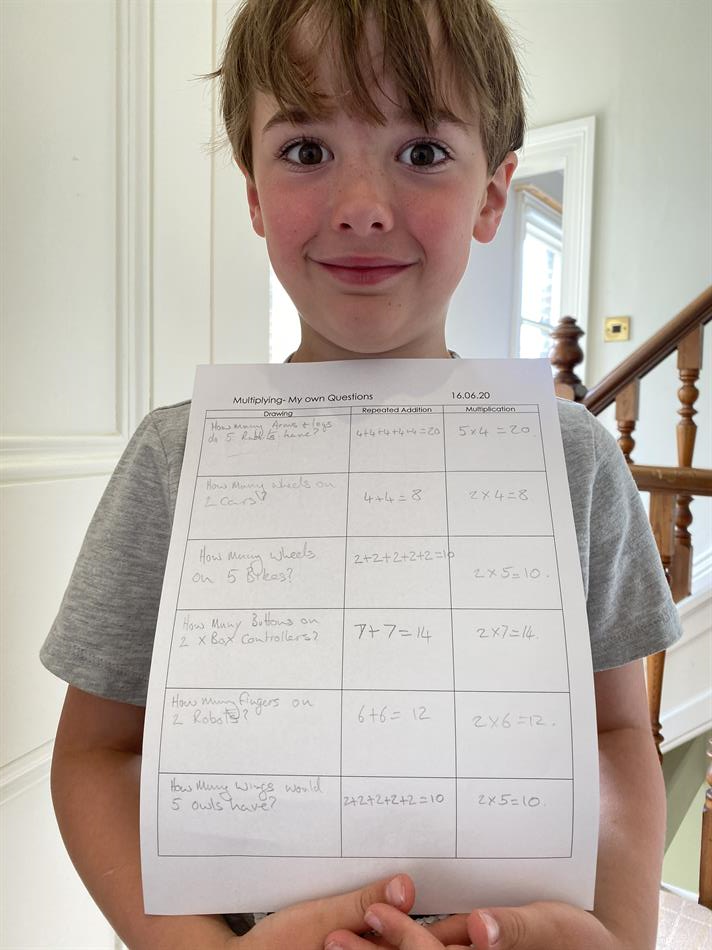 Multiplying- My own Questions 16.06.20
Drawing Repeated Addition Multiplication
How many Arms + legs
do 5 Robots have?
4+4+4+4+4=20
5×4=20.
How many wheels on
2 cars?
4+4=8
2×4=8.
How many wheels
on 5 Bikes?
2+2+2+2+2=10
2×5=10.
How Many Buttons on
2 x Box Controllers?
7+7=14
2×7=14.
How many fingers on
2 Robots?
6+6=12
2×6=12.
How Many wings would
5 owls have?
2+2+2+2+2=10
2×5=10.